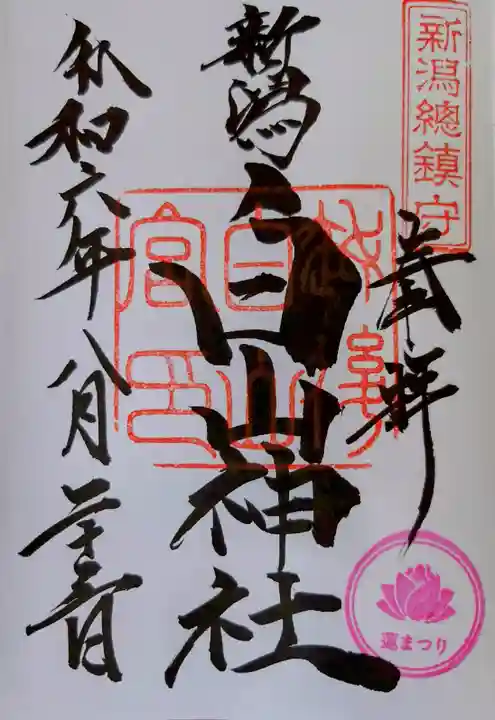 新潟總鎮守
奉拝
新潟
白山神社
令和六年八月二十三日
蓮まつり